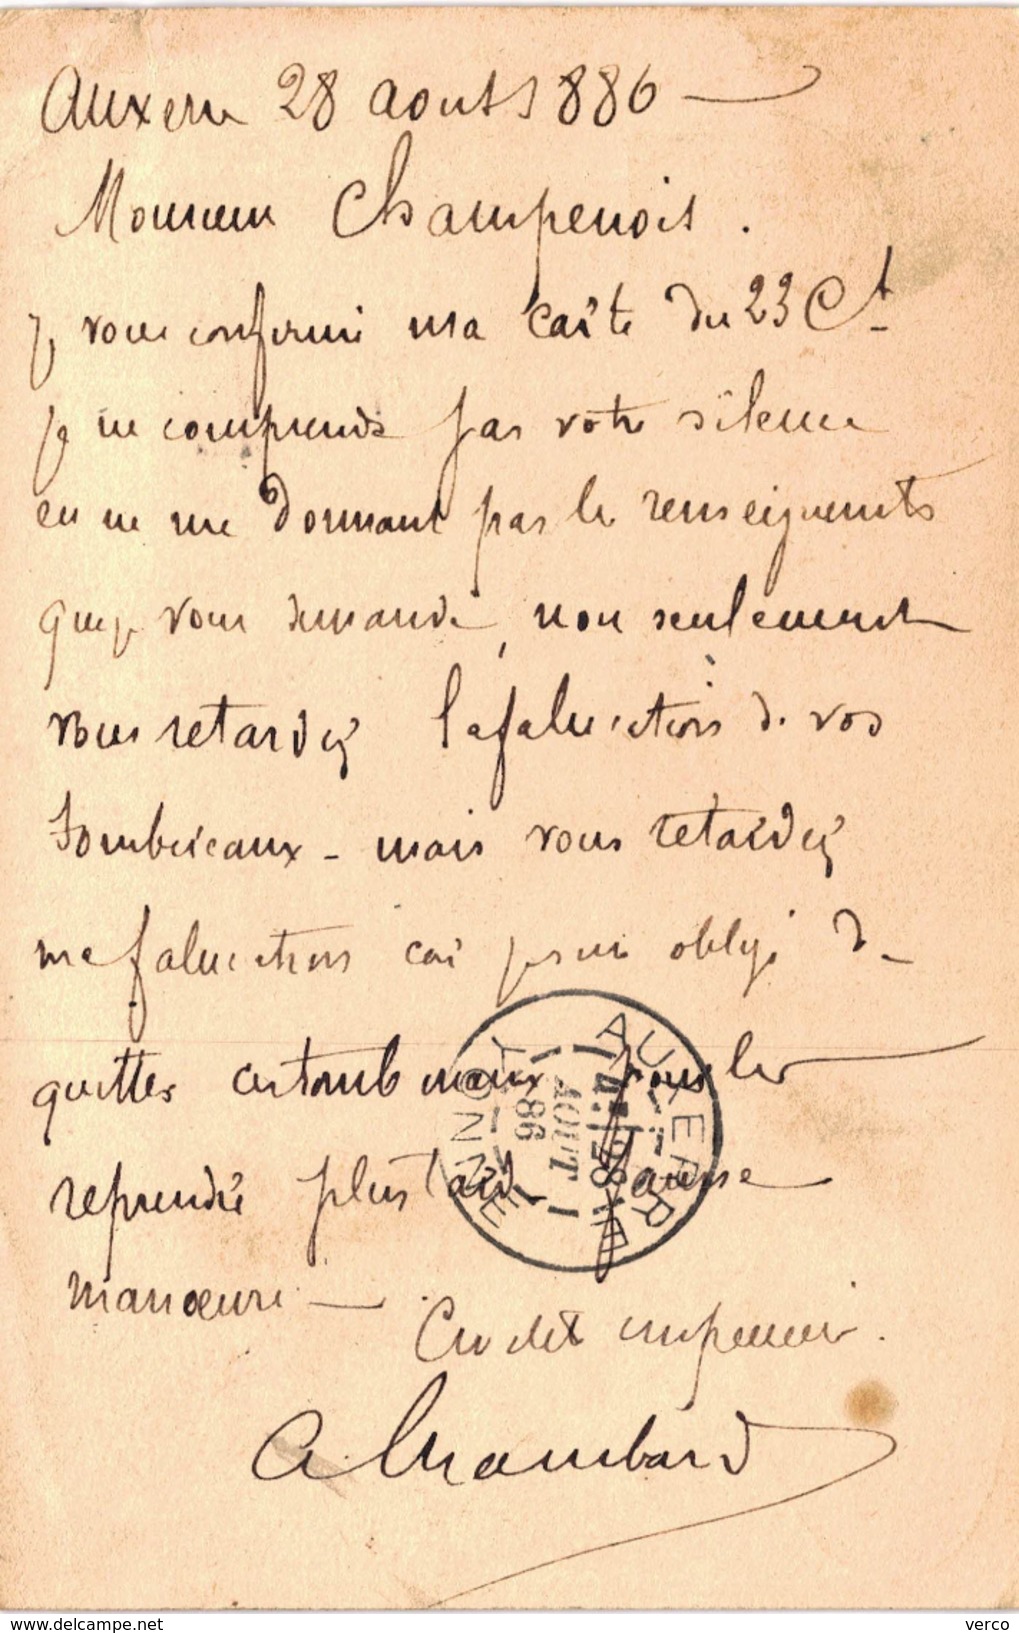 Auxerre 28 aout 1886 —
Monsieur Champenois.
Je vous confirme ma carte du 23 Ct
je ne comprends pas votre silence
en ne me donnant pas les renseignements
que je vous demande, non seulement
vous retardez la fabrication de vos
tombereaux - mais vous retardez
ma fabrication car je suis obligé de
quitter ces tombereaux pour les
reprendre plus tard fausse
manœuvre —
A Chambard
AUXERRE
YONNE
28
AOUT
86
www.delcampe.net
verco